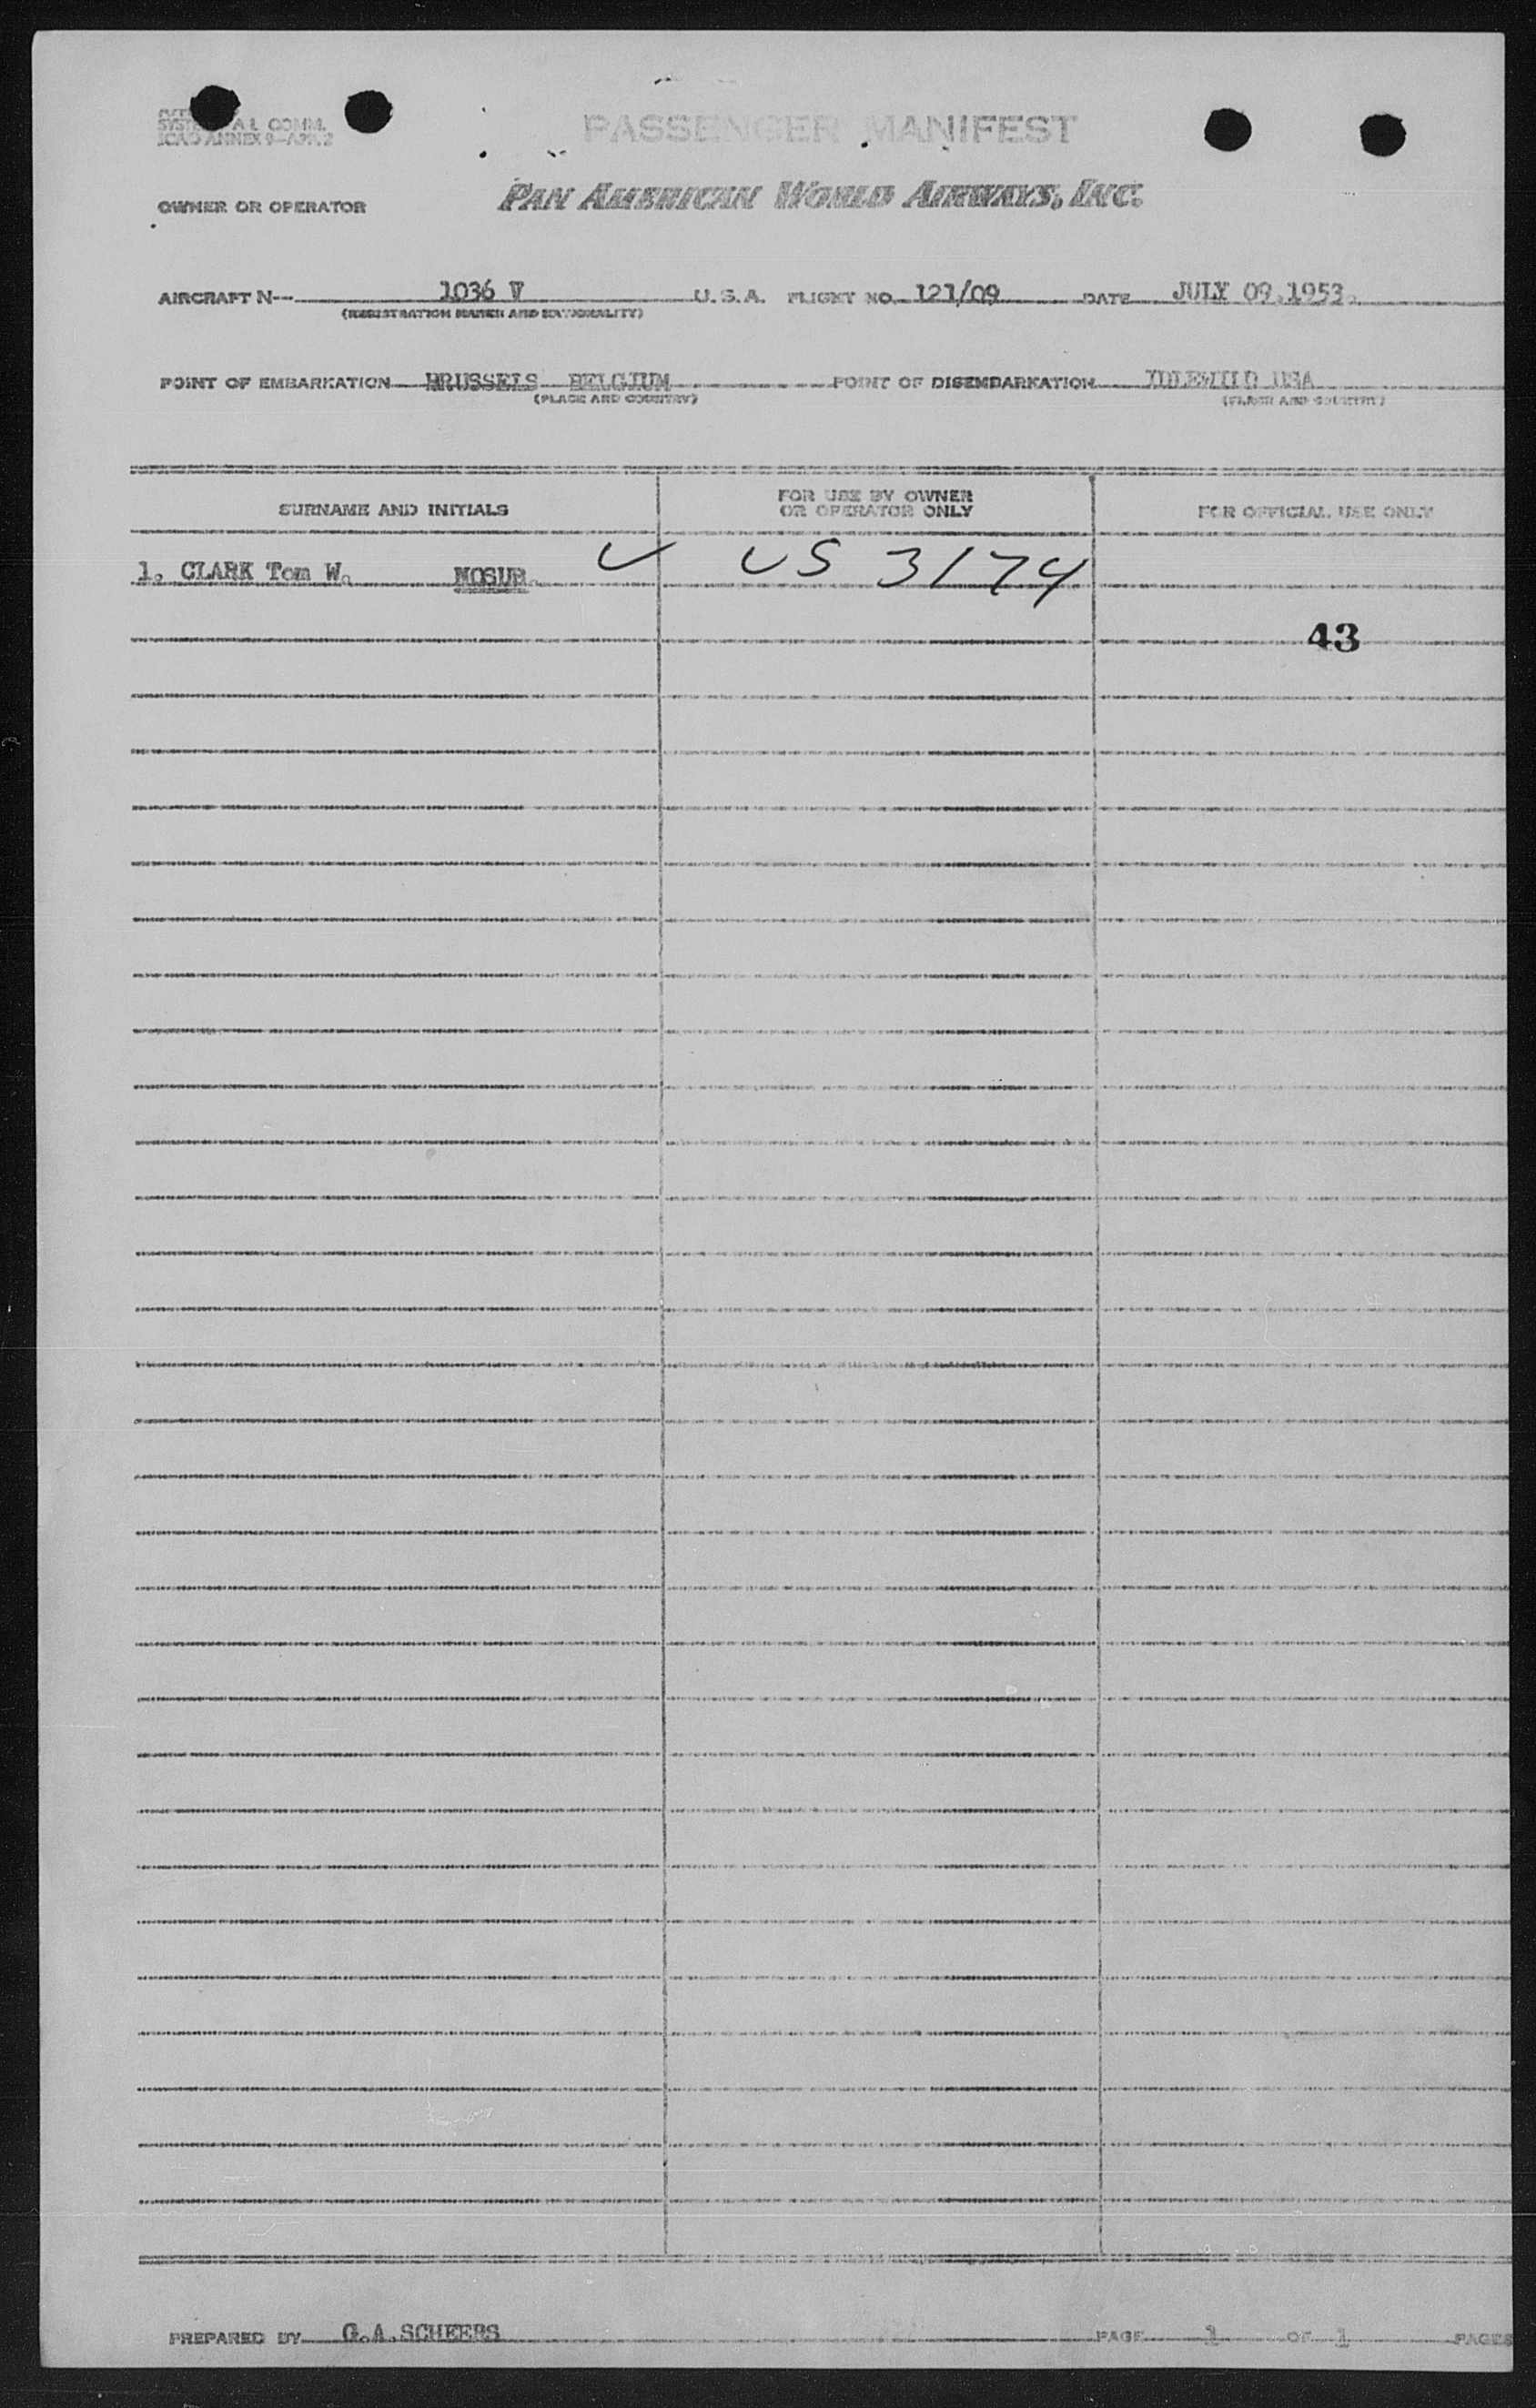 SYST A L COMM.
ICAO ANNEX 9—APP. 2
PASSENGER MANIFEST
OWNER OR OPERATOR PAN AMERICAN WORLD AIRWAYS, INC.
AIRCRAFT N-- 1036 V U.S.A. FLIGHT NO. 121/09 DATE JULY 09.1953.
(REGISTRATION MARKS AND NATIONALITY)
POINT OF EMBARKATION BRUSSELS BELGIUM POINT OF DISEMBARKATION IDLEWILD USA
(PLACE AND COUNTRY) (PLACE AND COUNTRY)
SURNAME AND INITIALS FOR USE BY OWNER OR OPERATOR ONLY FOR OFFICIAL USE ONLY
1. CLARK Tom W. NOSUB. US 3174
43
PREPARED BY G.A.SCHEERS PAGE 1 OF 1 PAGES